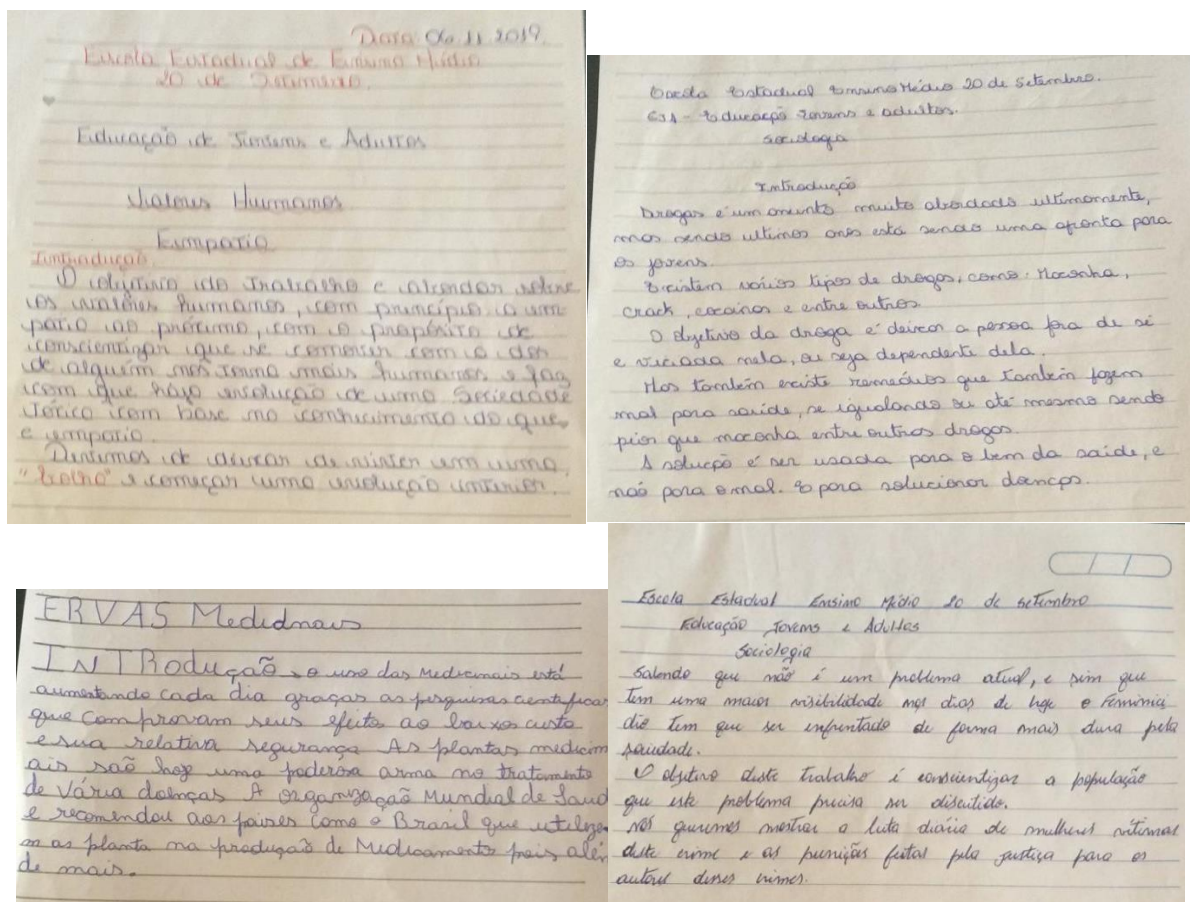 Data 06.11.2019.
Escola Estadual de Ensino Médio
20 de Setembro.
Educação de Jovens e Adultos
Valores Humanos
Empatia
Introdução.
O objetivo do Trabalho e abordar sobre
os valores humanos, com princípio a em
patia ao próximo, com o propósito de
conscientizar que se comover com a dor
de alguém nos torna mais humanos e faz
com que haja evolução de uma Sociedade
Teórico com base no conhecimento do que
e empatia.
Devemos de deixar de viver em uma
"bolha" e começar uma evolução interior.
Escola Estadual Ensino Médio 20 de Setembro.
EJA - Educacpõ Jovens e adultos.
Sociologia
Introdução
Drogas é um assunto muito abordado ultimamente,
mas sendo ultimos anos está sendo uma afronta para
os jovens.
Existem vários tipos de drogas, como: Maconha,
crack, cocaínas e entre outros.
O objetivo da droga é deixar a pessoa fora de si
e viciada nela, ou seja dependente dela.
Mas também existe remédios que também fazem
mal para saúde, se igualando ou até mesmo sendo
pior que maconha entre outros drogas.
A solução é ser usada para o bem da saíde, e
naó para o mal. E para solucionar doenças.
ERVAS Medidnais
INTRodução o uso das medicinais está
aumentando cada dia graças as pesquisas cientificas
que comprovam seus efeito ao baixos custo
e sua relativa segurança As plantas medicin
ais saõ hoje uma poderosa arma no tratamento
de Vária doenças A organização Mundial de Saud
e recomendou aos paires como o Brasil que utilize
m as planta na produção de Medicamento pois alé
de mais.
Escola Estadual Ensino Médio 20 de setembro
Educação Jovens e Adultos
Sociologia
Sabendo que não é um problema atual, e sim que
tem uma maior visibilidade nos dias de hoje o Feminicí
dio tem que ser enfrentado de forma mais dura pela
sociedade.
O objetivo deste trabalho é conscientizar a população
que este problema precisa ser discutido.
Nós queremos mostrar a luta diária de mulheres vítimas
deste crime e as punições feitas pela justiça para os
autores desses crimes.